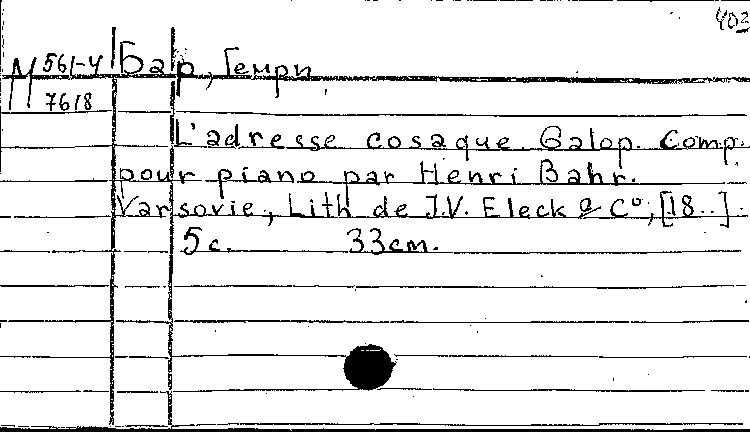 403
М 561-4 Бар, Генри
7618
L'adresse cosaque. Galop. Comp.
pour piano par Henri Bahr.
Varsovie, Lith de J.V. Fleck & C°, [18..].
5 c. 33 cm.